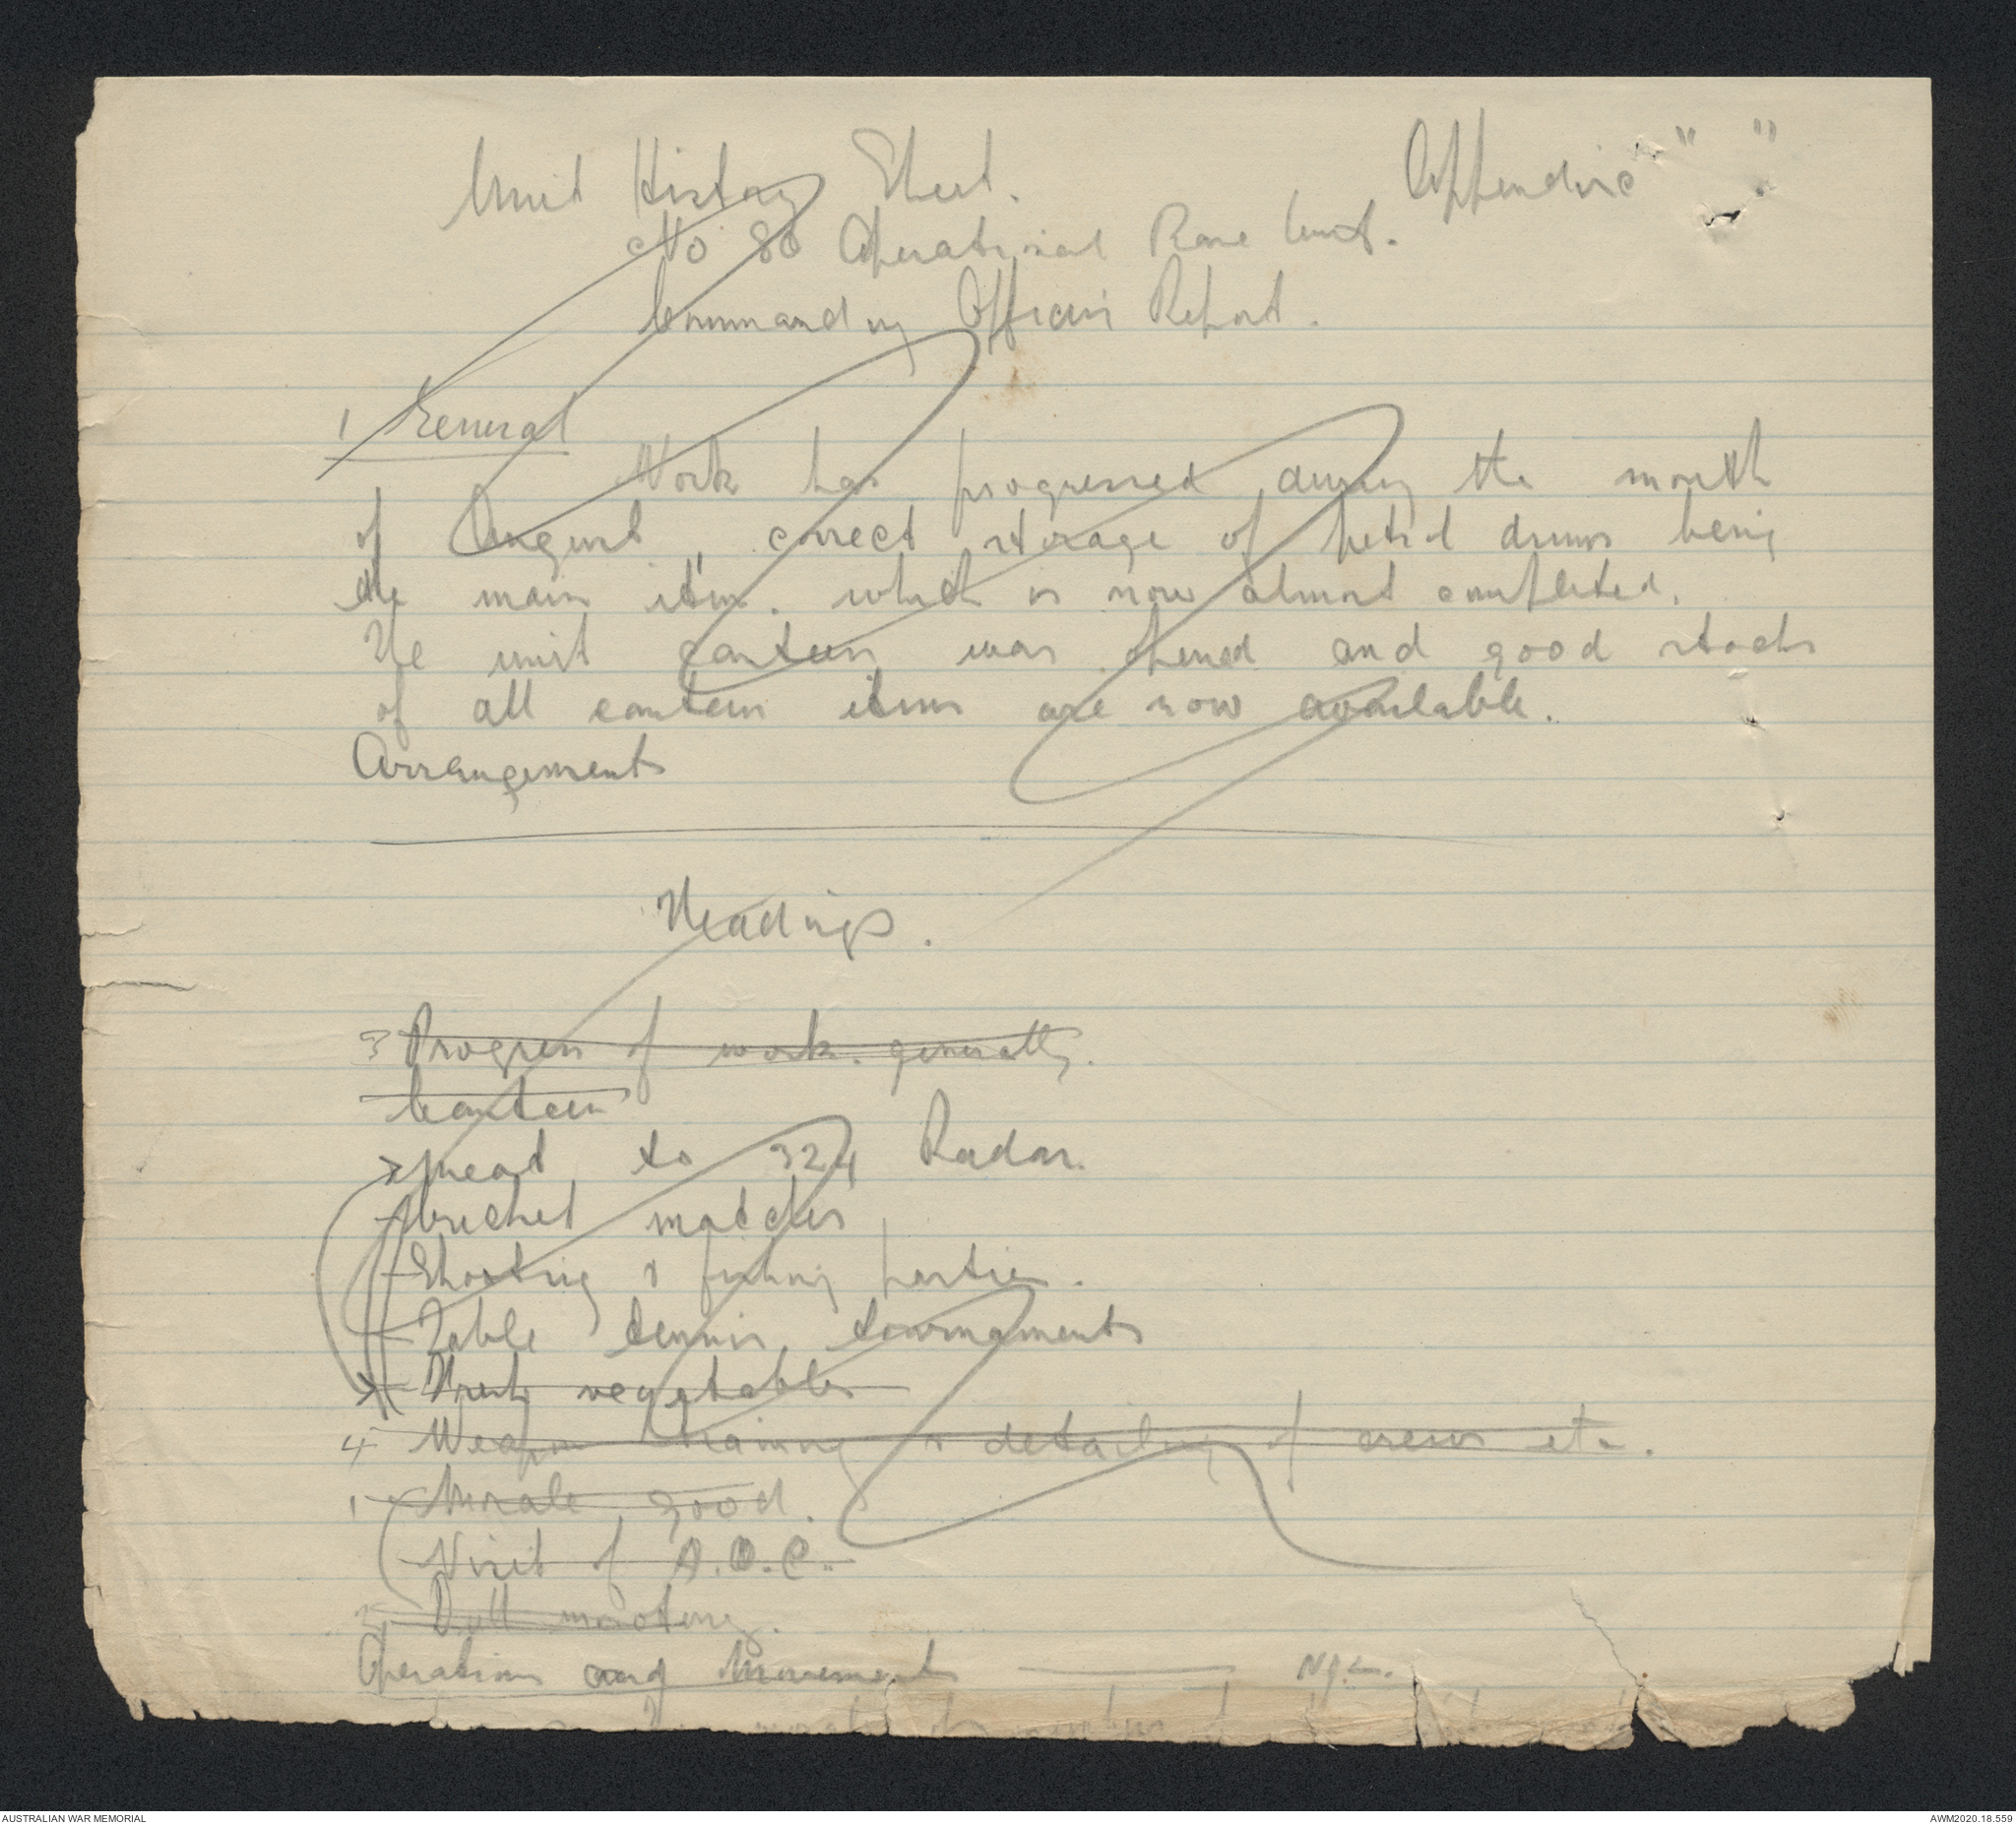 Unit History Sheet. Appendix " "
No 80 Operational Base Unit.
Commanding Officers Report.
1 General
Work has progressed during the month
of August, correct storage of petrol drums being
the main item. which is now almost completed.
The unit canteen was opened and good stocks
of all canteen items are now available.
Arrangements
Headings.
3 Progress of work. generally.
Canteen
to 324 Radar.
Cricket matches
Shooting & fishing parties.
Table tennis tournaments
Fresh vegetables
4 Weapon training & detailing of crews etc.
1 Morale good.
Visit of A.O.C.
Operations and Movement — NIL.
AUSTRALIAN WAR MEMORIAL
AWM2020.18.559